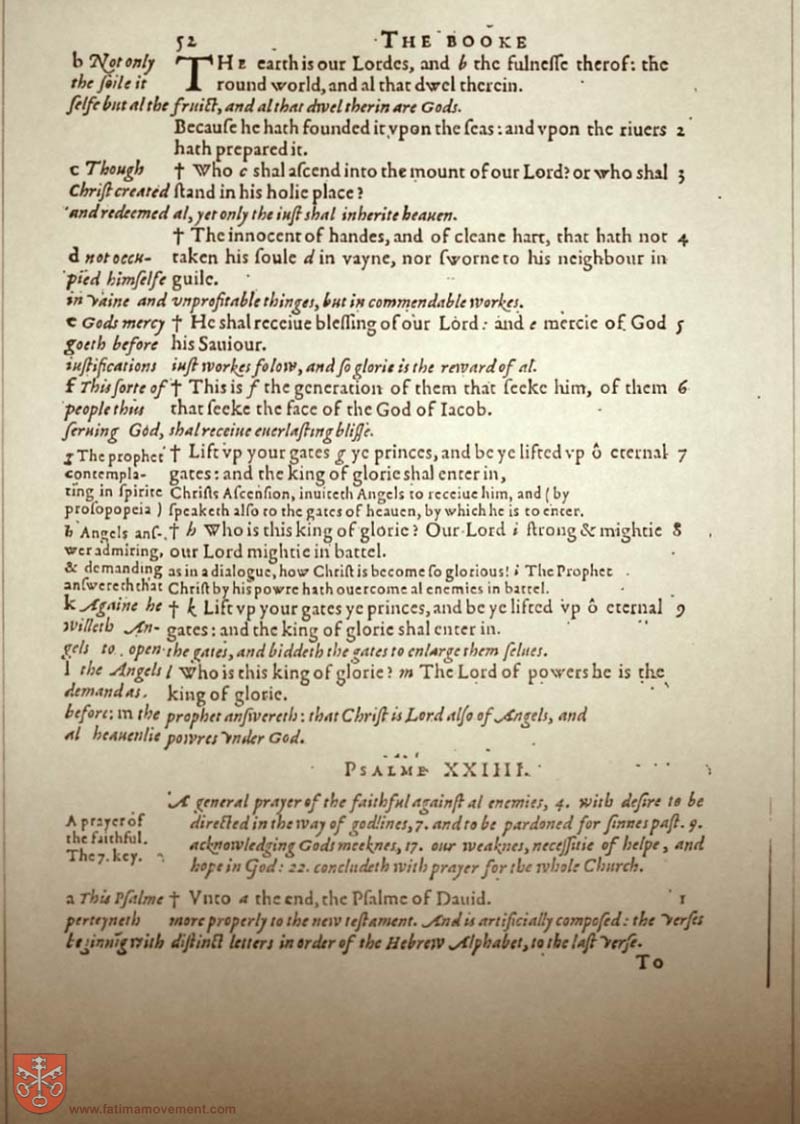 52 THE BOOKE
b Not only THE earth is our Lordes, and b the fulnesse therof: the
the soile it round world, and al that dwel therein.
selfe but al the fruict, and al that dwel therin are Gods.
Because he hath founded it vpon the seas: and vpon the riuers 2
hath prepared it.
c Though † Who c shal ascend into the mount of our Lord? or who shal 3
Christ created stand in his holie place?
and redeemed al, yet only the iust shal inherite heauen.
† The innocent of handes, and of cleane hart, that hath not 4
d not occu- taken his soule d in vayne, nor sworne to his neighbour in
pied himselfe guile.
in vaine and vnprofitable thinges, but in commendable workes.
e Gods mercy † He shal receiue blessing of our Lord: and e mercie of God 5
goeth before his Sauiour.
iustifications iust workes folow, and so glorie is the reward of al.
f This sorte of † This is f the generation of them that seeke him, of them 6
people thus that seeke the face of the God of Iacob.
seruing God, shal receiue euerlasting blisse.
g The prophet † Lift vp your gates g ye princes, and be ye lifted vp ô eternal 7
contempla- gates: and the king of glorie shal enter in,
ting in spirite Christs Ascension, inuiteth Angels to receiue him, and (by
prosopopeia) speaketh also to the gates of heauen, by which he is to enter.
h Angels ans- † h Who is this king of glorie? Our Lord i strong & mightie 8
wer admiring, our Lord mightie in battel.
& demanding as in a dialogue, how Christ is become so glorious! i The Prophet
answereth that Christ by his powre hath ouercome al enemies in battel.
k Againe he † k Lift vp your gates ye princes, and be ye lifted vp ô eternal 9
willeth An- gates: and the king of glorie shal enter in.
gels to open the gates, and biddeth the gates to enlarge them selues.
l the Angels l Who is this king of glorie? m The Lord of powers he is the
demand as king of glorie.
before: m the prophet answereth: that Christ is Lord also of Angels, and
al heauenlie powres vnder God.
PSALME XXIIII.
A general prayer of the faithful against al enemies, 4. with desire to be
A prayer of directed in the way of godlines, 7. and to be pardoned for sinnes past. 9.
the faithful. acknowledging Gods meeknes, 17. our weaknes, necessitie of helpe, and
The 7. key. hope in God: 22. concludeth with prayer for the whole Church.
a This Psalme † Vnto a the end, the Psalme of Dauid. 1
perteyneth more properly to the new testament. And is artificially composed: the verses
beginnīg with distinct letters in order of the Hebrew Alphabet, to the last verse.
To
www.fatimamovement.com